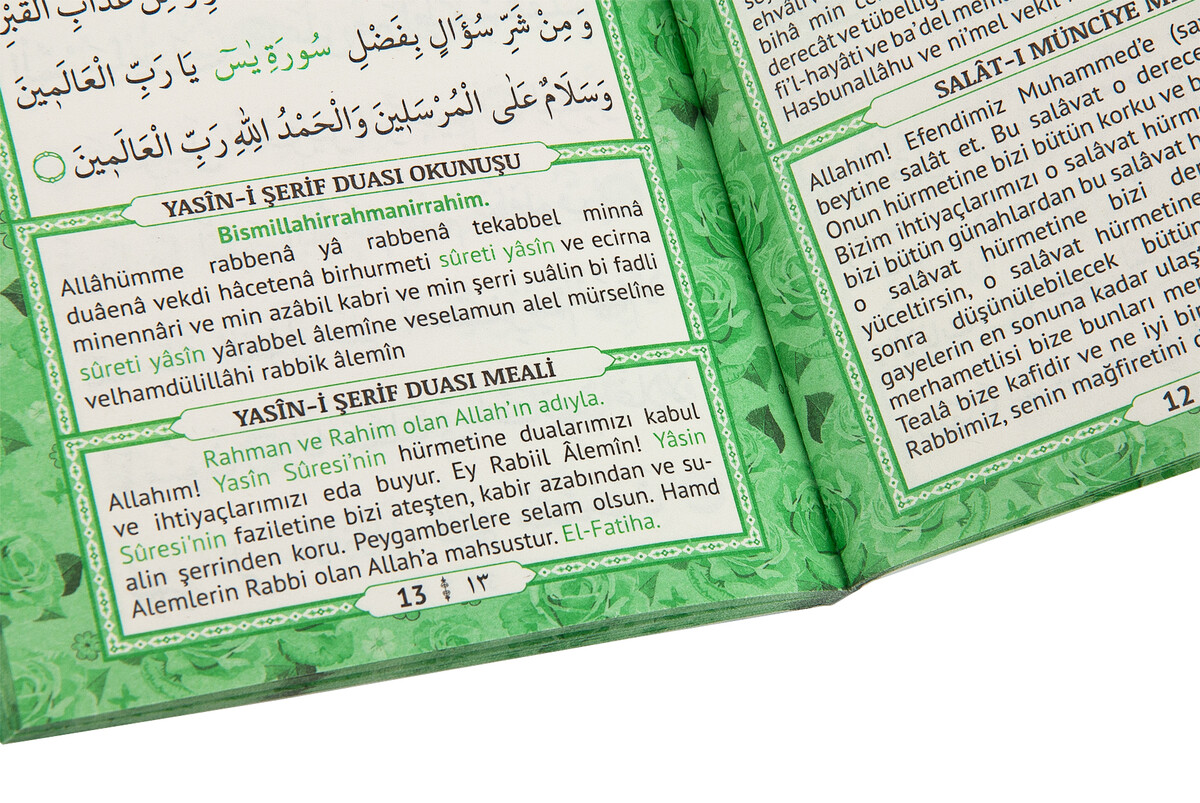 وَ مِنْ شَرِّ سُؤَالٍ بِفَضْلِ سُورَةِ يٰسٓ يَا رَبِّ الْعَالَمِينَ
وَسَلَامٌ عَلَى الْمُرْسَلِينَ وَالْحَمْدُ اللّٰهِ رَبِّ الْعَالَمِينَ
YASÎN-İ ŞERİF DUASI OKUNUŞU
Bismillahirrahmanirrahim.
Allâhümme rabbenâ yâ rabbenâ tekabbel minnâ
duâenâ vekdi hâcetenâ birhurmeti sûreti yâsîn ve ecirna
minennâri ve min azâbil kabri ve min şerri suâlin bi fadli
sûreti yâsîn yârabbel âlemîne veselamun alel mürselîne
velhamdülillâhi rabbik âlemîn
YASÎN-İ ŞERİF DUASI MEALİ
Rahman ve Rahim olan Allah'ın adıyla.
Allahım! Yasîn Sûresi'nin hürmetine dualarımızı kabul
ve ihtiyaçlarımızı eda buyur. Ey Rabiil Âlemîn! Yâsin
Sûresi'nin faziletine bizi ateşten, kabir azabından ve su-
alin şerrinden koru. Peygamberlere selam olsun. Hamd
Alemlerin Rabbi olan Allah'a mahsustur. El-Fatiha.
13 ١٣
ehvâli
bihâ min
derecât ve tübelliğ
fi'l-hayâti ve ba'del
Hasbunallâhu ve ni'mel vekil
SALÂT-I MÜNCİYE
Allahım! Efendimiz Muhammed'e
beytine salât et. Bu salâvat o
Onun hürmetine bizi bütün korku ve
Bizim ihtiyaçlarımızı o salâvat
bizi bütün günahlardan bu salâvat
o salâvat hürmetine bizi
yüceltirsin, o salâvat hürmetine
sonra düşünülebilecek bütün
gayelerin en sonuna kadar
merhametlisi bize bunları
Teala bize kafidir ve ne iyi
Rabbimiz, senin mağfiretini
12